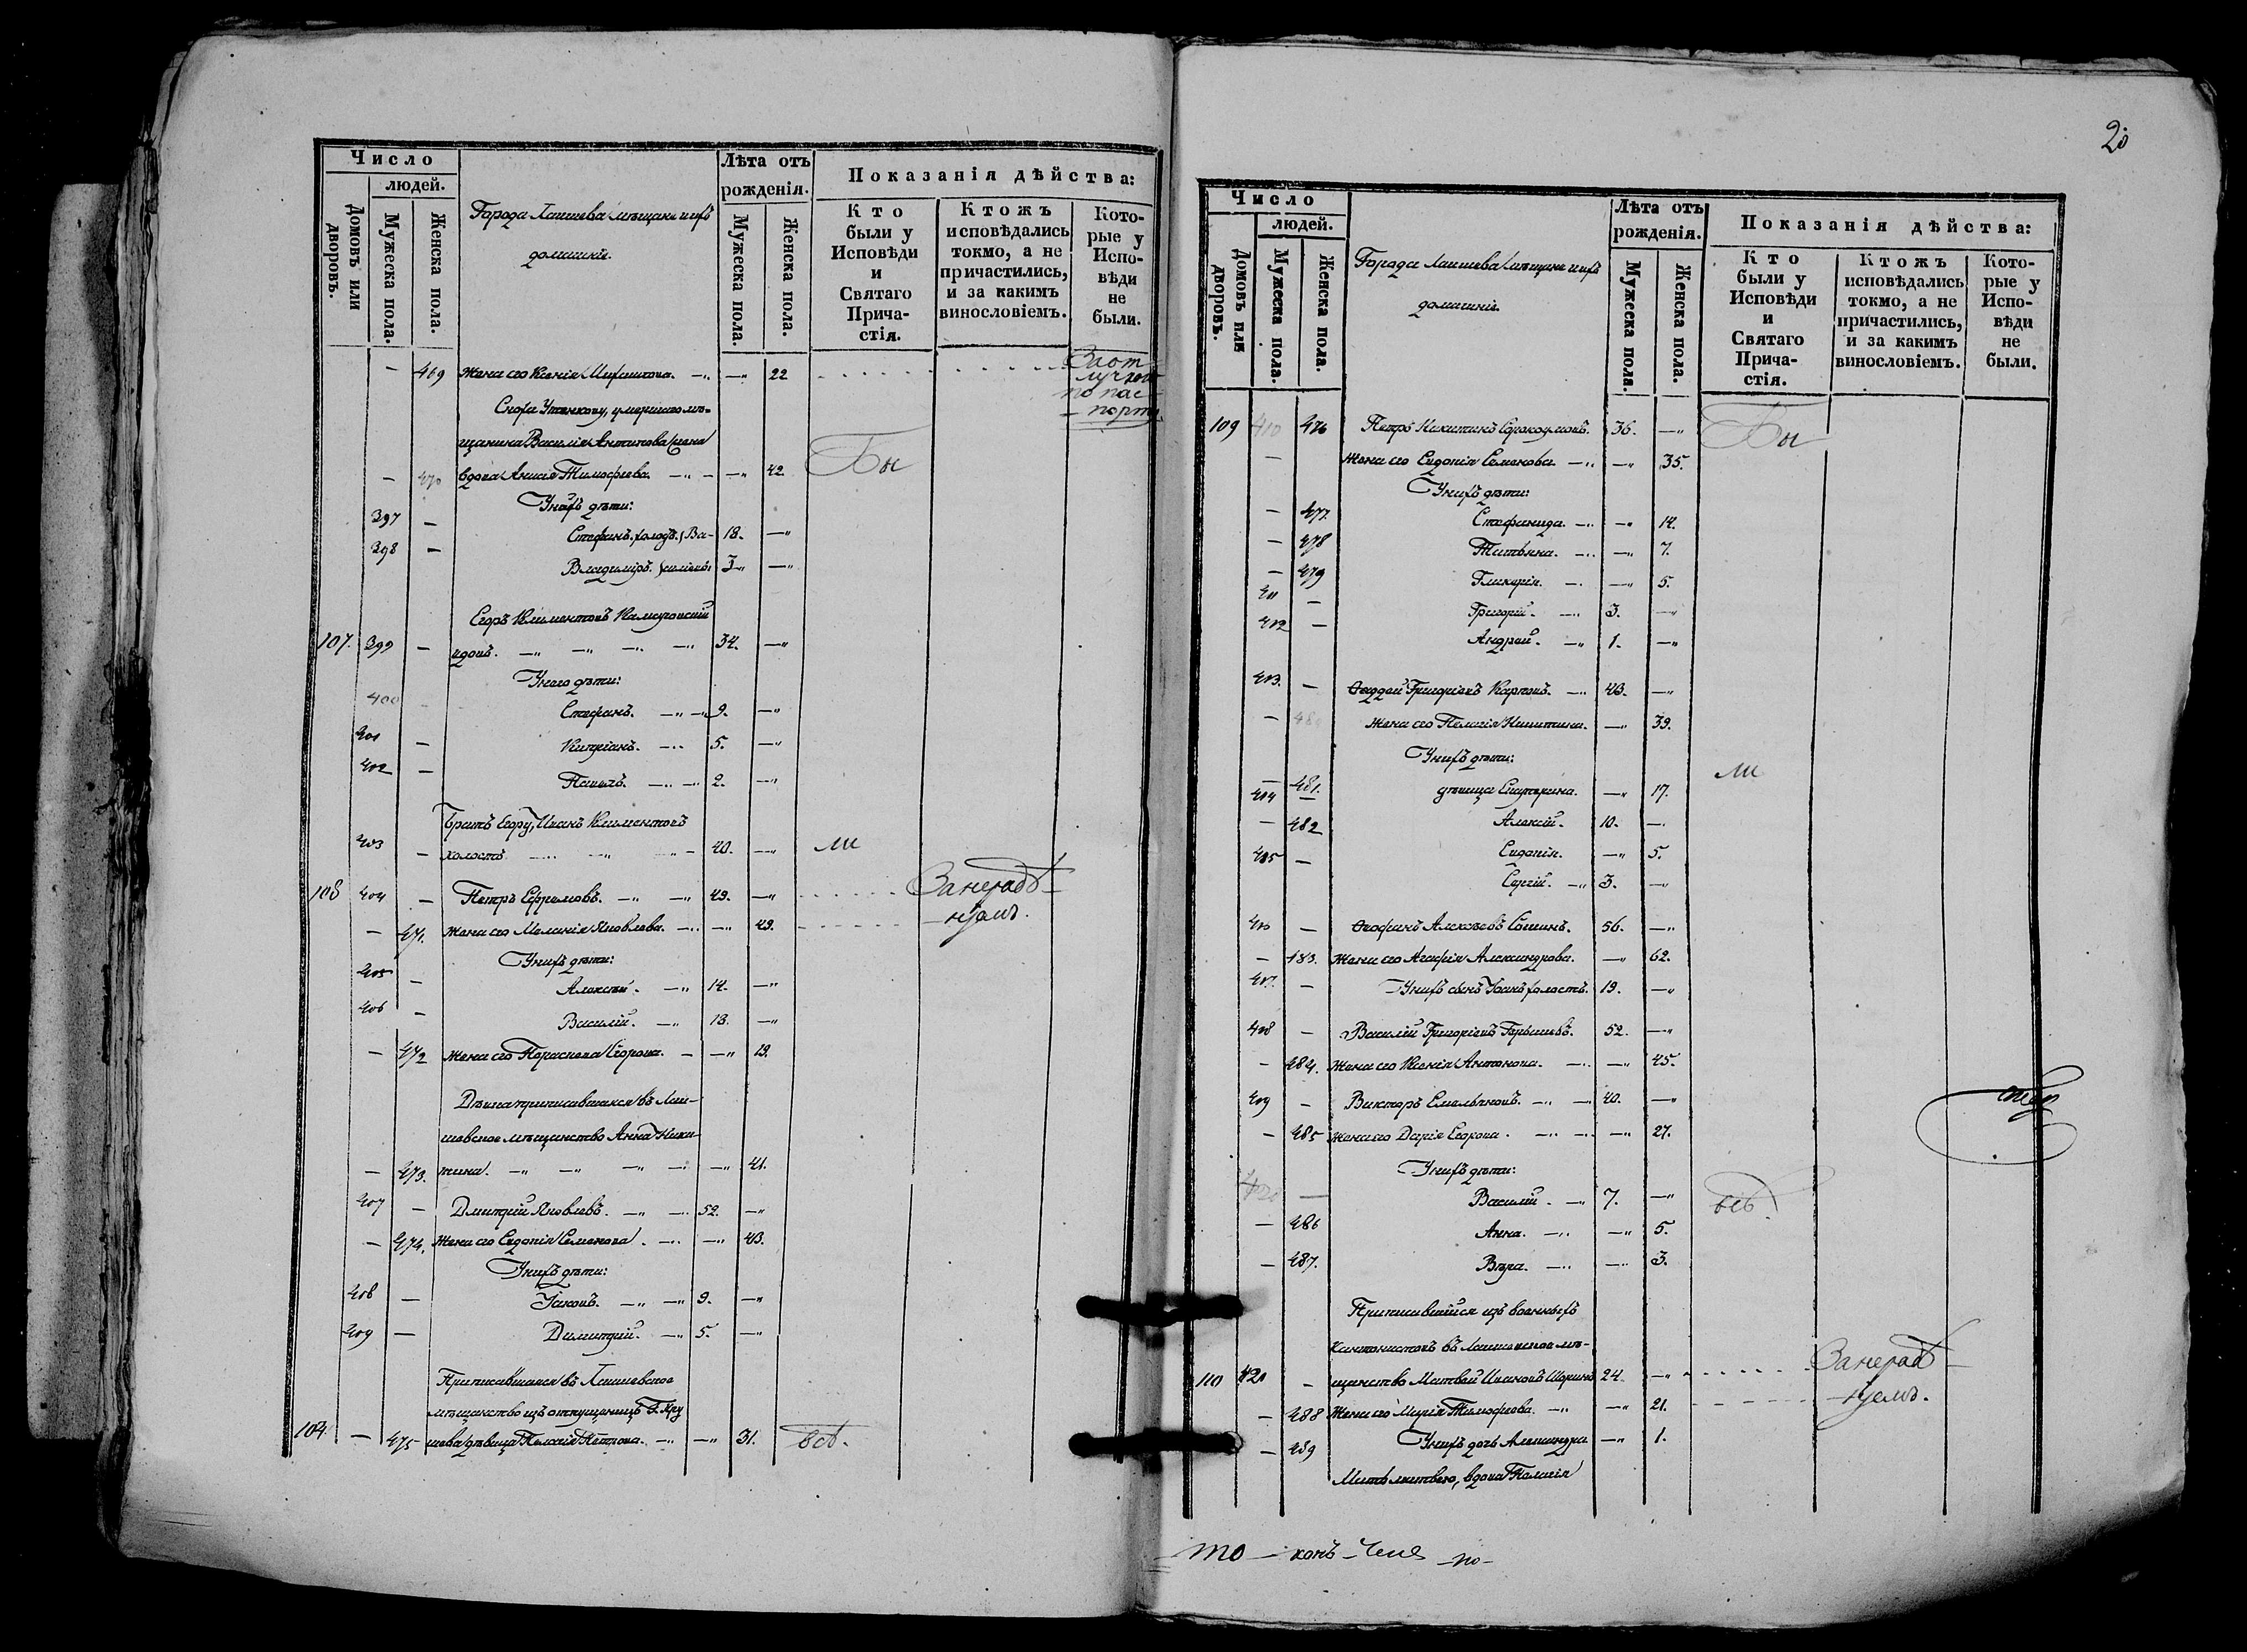 Число
людей.
Домовъ или дворовъ.
Мужеска пола.
Женска пола.
Города Лаишева мѣщане и ихъ
домашніе.
Лѣта отъ
рожденія.
Мужеска пола.
Женска пола.
Показанія дѣйства:
Кто были у Исповѣди и Святаго Прича-стія.
Ктожъ исповѣдались токмо, а не причастились, и за какимъ винословіемъ.
Кото-рые у Испо-вѣди не были.
— 469 жена его Ксенія — 22
За от
лучкою
по пас-
порту
Сноха умершаго мѣ-
щанина Василія Антипова жена
— 470 вдова Анисія Тимофеева. — 42 Бы
У нихъ дѣти:
397 — Стефанъ холос. Ва- 18. —
398 — Владиміръ. сильевы 3 —
Егоръ Климентовъ
107. 399 — вдовъ. 34. —
У него дѣти:
400 Стефанъ. 9. —
401 — Кипріанъ. 5. —
402 — Павелъ. 2. —
Братъ Егору, Иванъ Климентовъ
403 — холостъ 40. — ли
108 404 — Петръ Ефремовъ. 49. — За нерадѣ-
— 471. жена его Меланія Яковлева. — 49. -ніемъ.
У нихъ дѣти:
405 — Алексѣй. 14. —
406 — Василій. 18. —
— 472 жена его Параскева Егорова. — 19.
Дѣвка приписавшаяся въ Лаи-
шевское мѣщанство Анна Ники-
— 473. тина. — 41.
407 — Дмитрій Яковлевъ. 52. —
— 474. жена его Евдокія Семенова. — 43.
У нихъ дѣти:
408 — Іаковъ. 9. —
409 — Димитрій. 5. —
Приписавшаяся въ Лаишевское
мѣщанство изъ отпущениць Г. Хру
104. — 475 щева дѣвица Пелагія Петрова. — 31. всѣ.
20
Число
людей.
Домовъ или дворовъ.
Мужеска пола.
Женска пола.
Города Лаишева мѣщане и ихъ
домашніе.
Лѣта отъ
рожденія.
Мужеска пола.
Женска пола.
Показанія дѣйства:
Кто были у Исповѣди и Святаго Прича-стія.
Ктожъ исповѣдались токмо, а не причастились, и за какимъ винословіемъ.
Кото-рые у Испо-вѣди не были.
109 410 476 Петръ Никитинъ Сорокоумовъ. 36. — Бы
— жена его Евдокія Семенова — 35.
У нихъ дѣти:
— 477. Стефанида. — 14.
— 478 Татьяна. — 7.
— 479 Гликерія. — 5.
411 — Григорій. 3. —
412 — Андрей. 1. —
413. — Фаддей Григорьевъ Карповъ. 43. —
— 480 жена его Пелагія Никитина. — 39.
У нихъ дѣти: ли
— 481. дѣвица Екатерина. — 17.
414 — Алексій. 10. —
— 482 Евдокія. — 5.
415 — Сергій. 3. —
— Феофанъ Алексѣевъ 56. —
— 483. жена его Агафія Александрова. — 62.
417. — У нихъ сынъ Іоанъ холостъ. 19. —
418 — Василій Григорьевъ 52. —
— 484. жена его Ксенія Антонова. — 45.
419 — Викторъ Емельяновъ. 40. —
— 485 жена его Дарія Егорова. — 27.
У нихъ дѣти:
420 — Василій. 7. — всѣ.
— 486 Анна. — 5.
— 487. Вѣра. — 3.
Приписавшійся изъ военныхъ
кантонистовъ въ Лаишевское мѣ-
110 421 — щанство Матвей Ивановъ 24 — За нерадѣ-
— 488 жена его Марія Тимофеева. — 21. -ніемъ.
— 489 У нихъ дочь Александра — 1.
Мать Матвею, вдова Пелагія